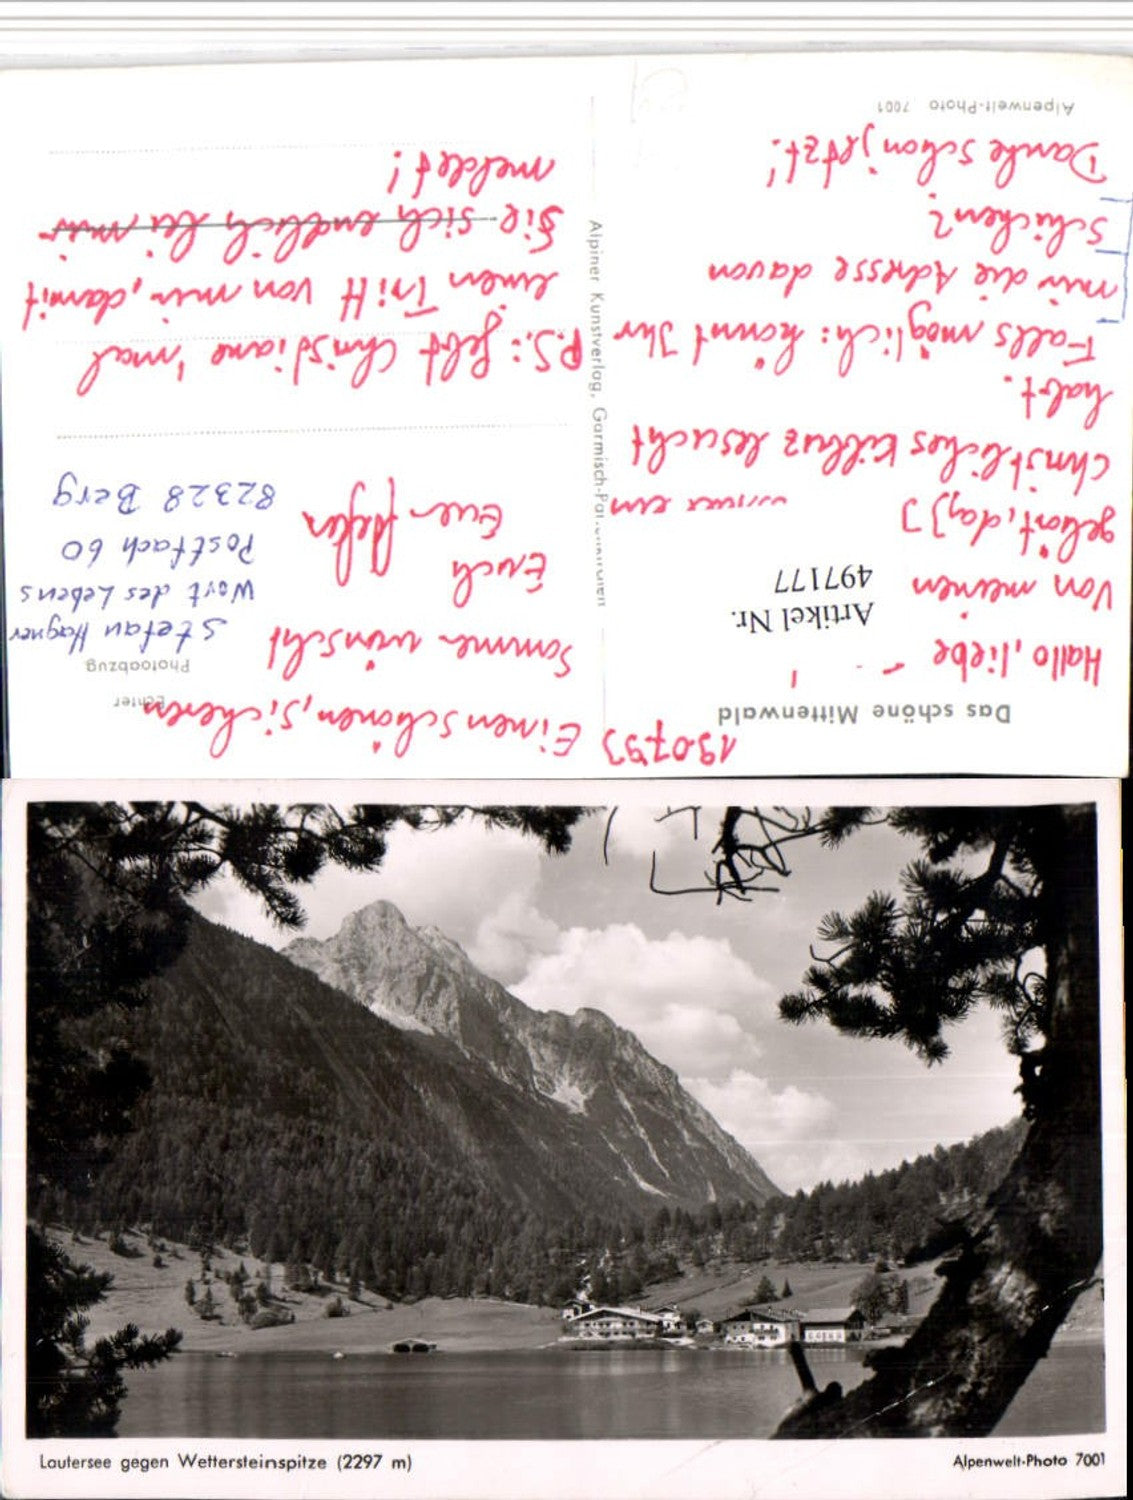 Das schöne Mittenwald
19.07.93
Hallo, liebe
Von meinen
gehört, daß I
ein
christliches Kibbuz besucht
habt.
Falls möglich: könnt Ihr
mir die Adresse davon
schicken?
Danke schon jetzt!
Alpenwelt-Photo 7001
Artikel Nr.
497177
Alpiner Kunstverlag, Garmisch-Par
Einen schönen, sicheren
Sommer wünscht
Euch
Euer Stefan
Echter
Photoabzug
Stefan Hagner
Wort des Lebens
Postfach 60
82328 Berg
P.S.: gebt Christiane 'mal
einen Tritt von mir, damit
Sie sich endlich bei mir
meldet!
Lautersee gegen Wettersteinspitze (2297 m)
Alpenwelt-Photo 7001